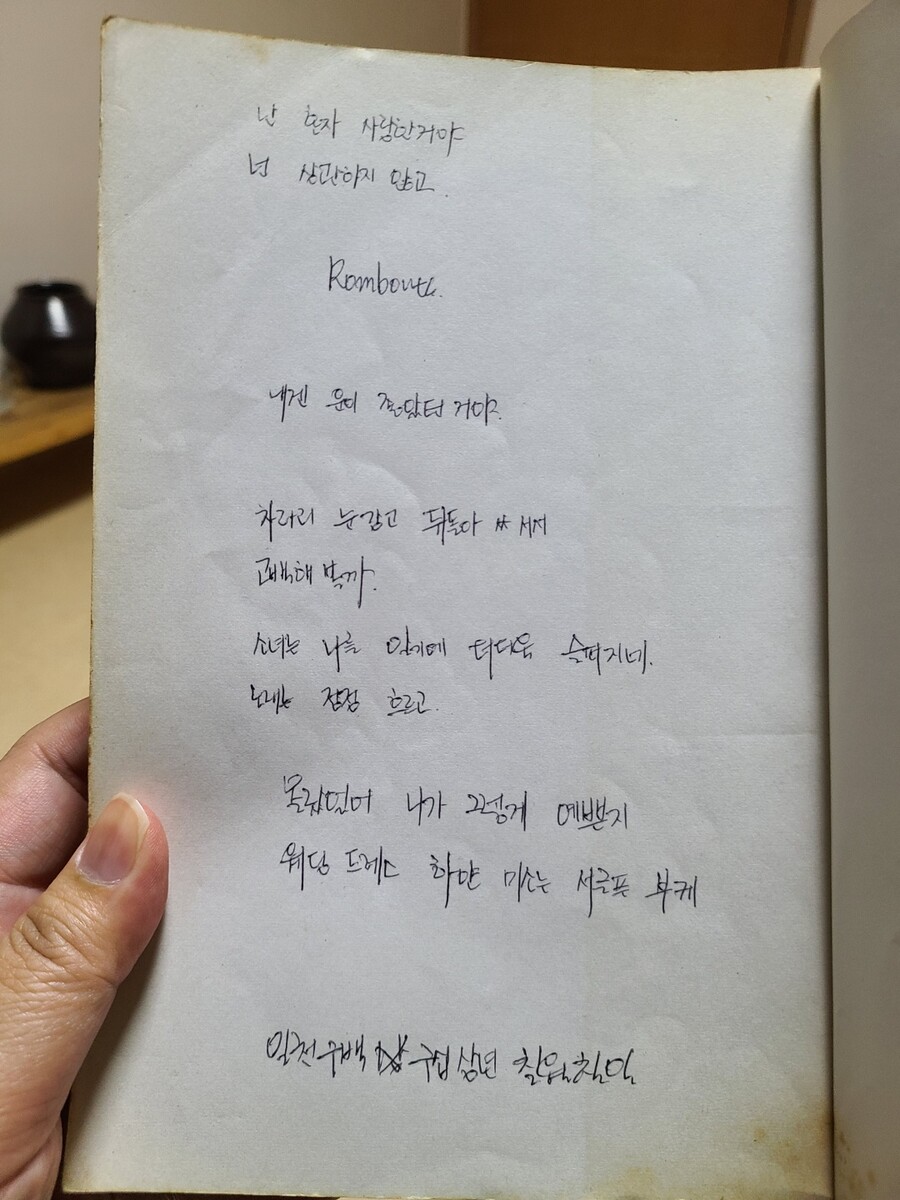 난 혼자 사랑한거야
넌 상관하지 않고.
Rombouts.
내겐 운이 좋았던 거야.
차라리 눈감고 뒤돌아 서서
고백해 볼까.
소녀는 나를 알기에 더더욱 슬퍼지네.
노래는 점점 흐르고.
몰랐었어 니가 그렇게 예쁜지
웨딩 드레스 하얀 미소는 서글픈 부케
일천구백 구십삼년 칠월칠일